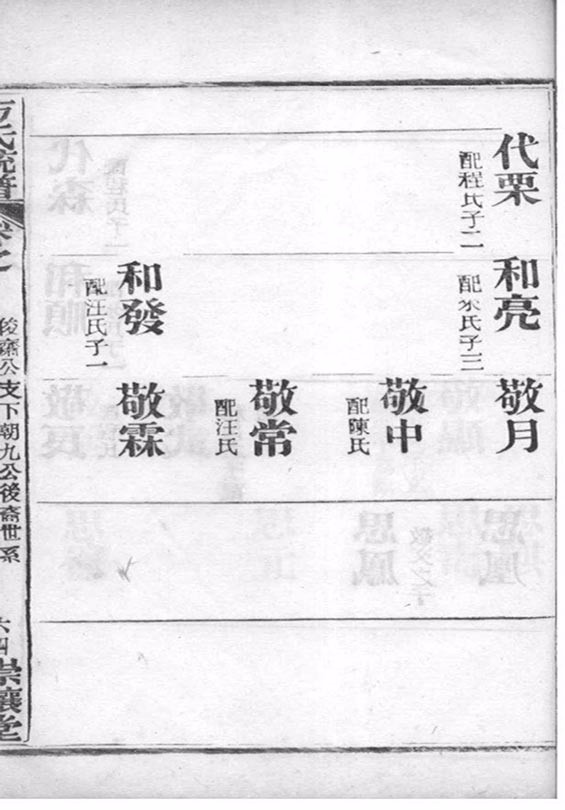 代栗
配程氏子二
和亮
配氏子三
敬月
敬中
配陳氏
敬常
配汪氏
和發
配汪氏子一
敬霖
方氏統譜
俊齋公支下朝九公後裔世系
六四
崇讓堂